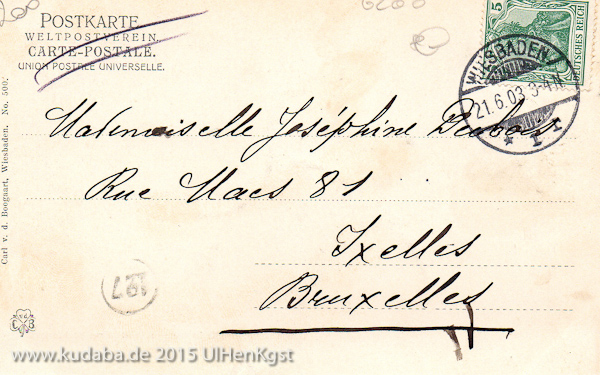 POSTKARTE
WELTPOSTVEREIN.
CARTE-POSTALE.
UNION POSTALE UNIVERSELLE.
5
DEUTSCHES REICH
WIESBADEN
21.6.03 3-4N
* 1 r
Mademoiselle Joséphine
Rue Maes 81
Ixelles
Bruxelles
Carl v. d. Boogaart, Wiesbaden. No. 500.
197
C B
www.kudaba.de 2015 UlHenKgst